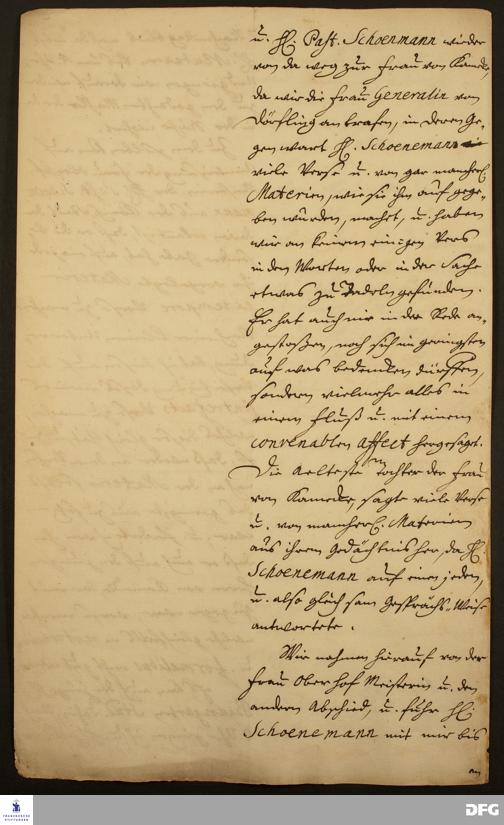 u. H. Past. Schoenmann wieder
von da weg zur Frau von Kameke,
da wir die Frau Generalin von
Dörfling antrafen, in deren Ge-
genwart H. Schoenemann
viele Verse u. von gar mancherl.
Materien, wie sie ihm aufgege-
ben wurden, machet, u. haben
wir an keinem einzigen Vers
in den Worten oder in der Sache
etwas zu Tadeln gefunden.
Er hat auch nie in der Rede an-
gestoßen, noch sich im geringsten
auf was bedencken dürffen,
sondern vielmehr alles in
einem Fluß u. mit einem
convenablen affect hergesagt.
Die Aelteste Tochter der Frau
von Kameke, sagte viele Verse
u. von mancherl. Materien
aus ihrem Gedächtnis her, da H.
Schoenemann auf einen jeden,
u. also gleichsam Gesprächs-Weise
antwortete.
Wir nahmen hierauf von der
Frau Oberhof Meisterin u. den
andern Abschied, u. fuhr H.
Schoenemann mit mir bis
FRANCKESCHE
STIFTUNGEN
DFG